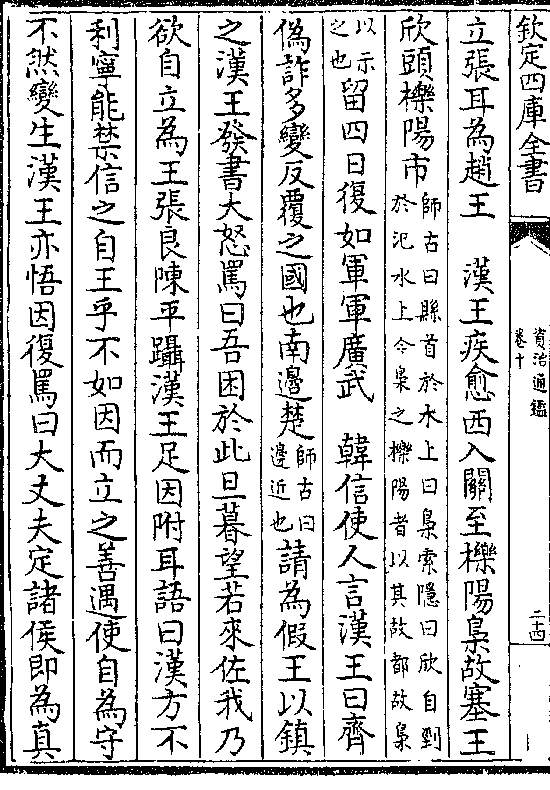 欽定四庫全書
資治通鑑
卷十
二十四
立張耳為趙王　漢王疾愈西入關至櫟陽梟故塞王
欣頭櫟陽市師古曰縣首於木上曰梟索隱曰欣自剄於汜水上今梟之櫟陽者以其故都故梟
以示之也留四日復如軍軍廣武　韓信使人言漢王曰齊
偽詐多變反覆之國也南邊楚師古曰邊近也請為假王以鎮
之漢王發書大怒罵曰吾困於此旦暮望若來佐我乃
欲自立為王張良陳平躡漢王足因附耳語曰漢方不
利寧能禁信之自王乎不如因而立之善遇使自為守
不然變生漢王亦悟因復罵曰大丈夫定諸侯即為真